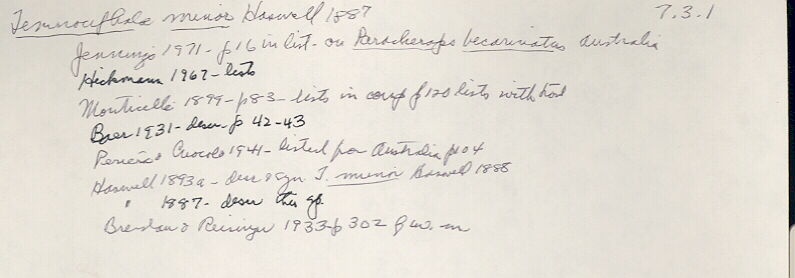 Temnocephala minor Haswell 1887 7.3.1
Jennings 1971 - p16 in list - on Paracheraps bicarinatus Australia
Hickmann 1967 - lists
Monticelli 1899 - p83 - lists in p120 lists with host
Baer 1931 - descr. p 42-43
Pereira & Cuocolo 1941 - listed for Australia p104
Haswell 1893a - desc & syn T. minor Haswell 1888
" 1887 - descr this sp.
Bresslau & Reisinger 1933 p 302